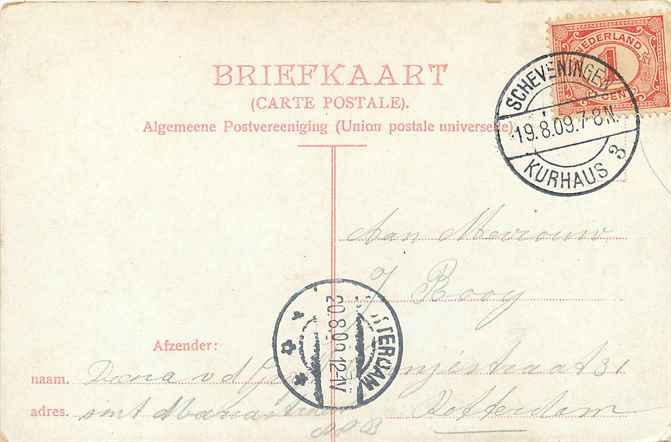 BRIEFKAART
(CARTE POSTALE).
Algemeene Postvereeniging (Union postale universelle)
NEDERLAND
1
SCHEVENINGEN
19.8.09.7-8N.
KURHAUS 3
Aan Mevrouw
J Booy
20.8.09 12-1V
ROTTERDAM
Afzender:
naam.
straat 31
adres.
Rotterdam